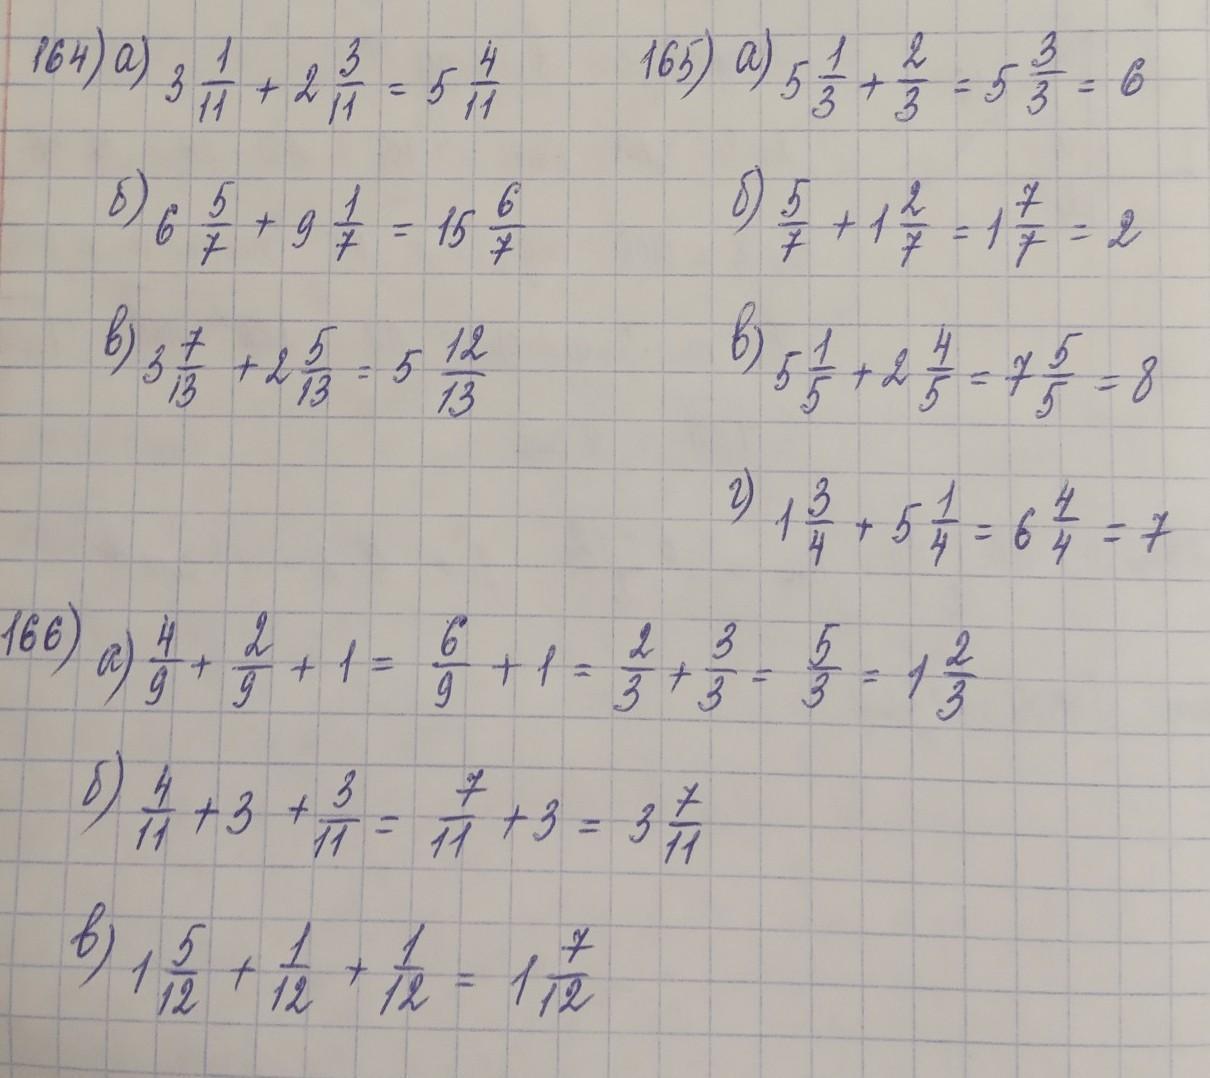 164) а) 3 1/11 + 2 3/11 = 5 4/11
б) 6 5/7 + 9 1/7 = 15 6/7
в) 3 7/13 + 2 5/13 = 5 12/13
165) а) 5 1/3 + 2/3 = 5 3/3 = 6
б) 5/7 + 1 2/7 = 1 7/7 = 2
в) 5 1/5 + 2 4/5 = 7 5/5 = 8
г) 1 3/4 + 5 1/4 = 6 4/4 = 7
166) а) 4/9 + 2/9 + 1 = 6/9 + 1 = 2/3 + 3/3 = 5/3 = 1 2/3
б) 4/11 + 3 + 3/11 = 7/11 + 3 = 3 7/11
в) 1 5/12 + 1/12 + 1/12 = 1 7/12